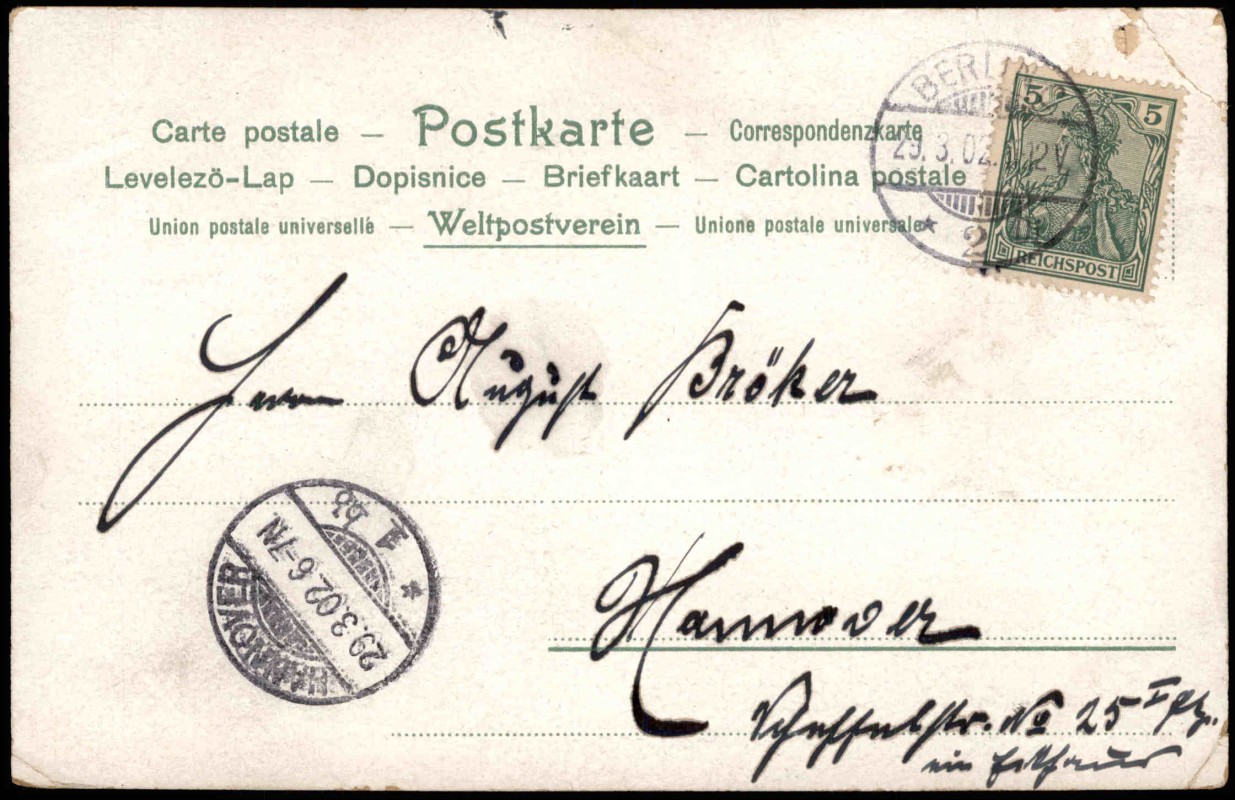 Carte postale — Postkarte — Correspondenzkarte
Levelezö-Lap — Dopisnice — Briefkaart — Cartolina postale
Union postale universelle — Weltpostverein — Unione postale universale
BERLIN
29.3.02. 12V
* 2
5 5
REICHSPOST
Herrn August Bröker
HANNOVER
29.3.02.6-7N
* 1
Hannover
No 25 I
im Eckhaus